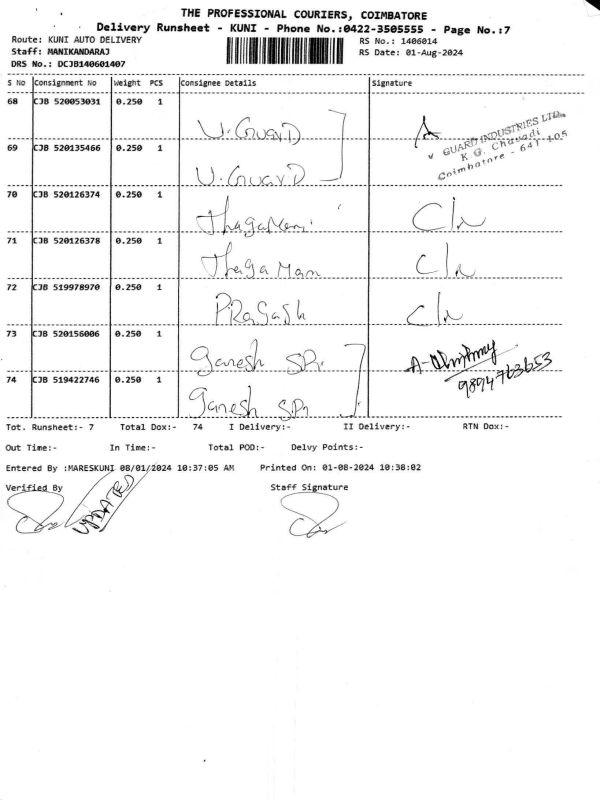 THE PROFESSIONAL COURIERS, COIMBATORE
Delivery Runsheet - KUNI - Phone No.:0422-3505555 - Page No.:7
Route: KUNI AUTO DELIVERY
RS No.: 1406014
Staff: MANIKANDARAJ
RS Date: 01-Aug-2024
DRS No.: DCJB140601407
S No Consignment No Weight PCS Consignee Details Signature
68 CJB 520053031 0.250 1 V. Guard
V GUARD INDUSTRIES LTD.,
K. G. Chavadi
Coimbatore - 641 105
69 CJB 520135466 0.250 1 V. Guard
70 CJB 520126374 0.250 1 Thagamani
71 CJB 520126378 0.250 1 Thaga Mani
72 CJB 519978970 0.250 1 PRagash
73 CJB 520156006 0.250 1 Ganesh
9894763653
74 CJB 519422746 0.250 1 Ganesh
Tot. Runsheet:- 7 Total Dox:- 74 I Delivery:- II Delivery:- RTN Dox:-
Out Time:- In Time:- Total POD:- Delvy Points:-
Entered By :MARESKUNI 08/01/2024 10:37:05 AM Printed On: 01-08-2024 10:38:02
Verified By Staff Signature
UPDATED